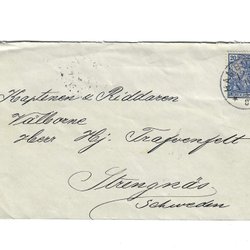 Kaptenen u Riddaren
Wälborne
Herr Hj. Trafvenfelt
Strengnäs
Schweden
20